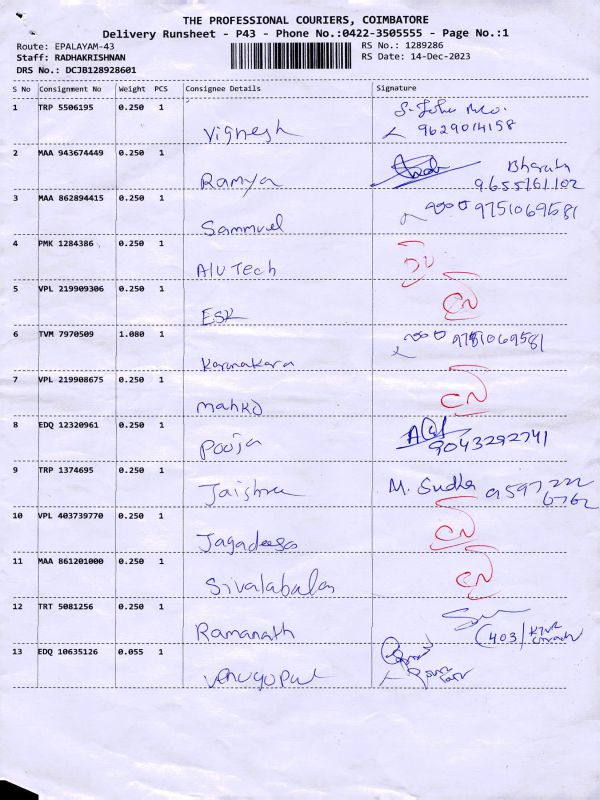 THE PROFESSIONAL COURIERS, COIMBATORE
Delivery Runsheet - P43 - Phone No.:0422-3505555 - Page No.:1
Route: EPALAYAM-43 RS No.: 1289286
Staff: RADHAKRISHNAN RS Date: 14-Dec-2023
DRS No.: DCJB128928601
S No Consignment No Weight PCS Consignee Details Signature
1 TRP 5506195 0.250 1 Vignesh S. John 9629014158
2 MAA 943674449 0.250 1 Ramya Bharath 9655161102
3 MAA 862894415 0.250 1 Sammuel 9751069581
4 PMK 1284386 0.250 1 AlU Tech
5 VPL 219909306 0.250 1 ESK
6 TVM 7970509 1.080 1 Karunakara 9751069581
7 VPL 219908675 0.250 1 mahko
8 EDQ 12320961 0.250 1 Pooja 9043292741
9 TRP 1374695 0.250 1 Jaishree M. Sudha 9597222 6762
10 VPL 403739770 0.250 1 Jagadeesa
11 MAA 861201000 0.250 1 Sivalabalan
12 TRT 5081256 0.250 1 Ramanath 403
13 EDQ 10635126 0.055 1 Venugopal